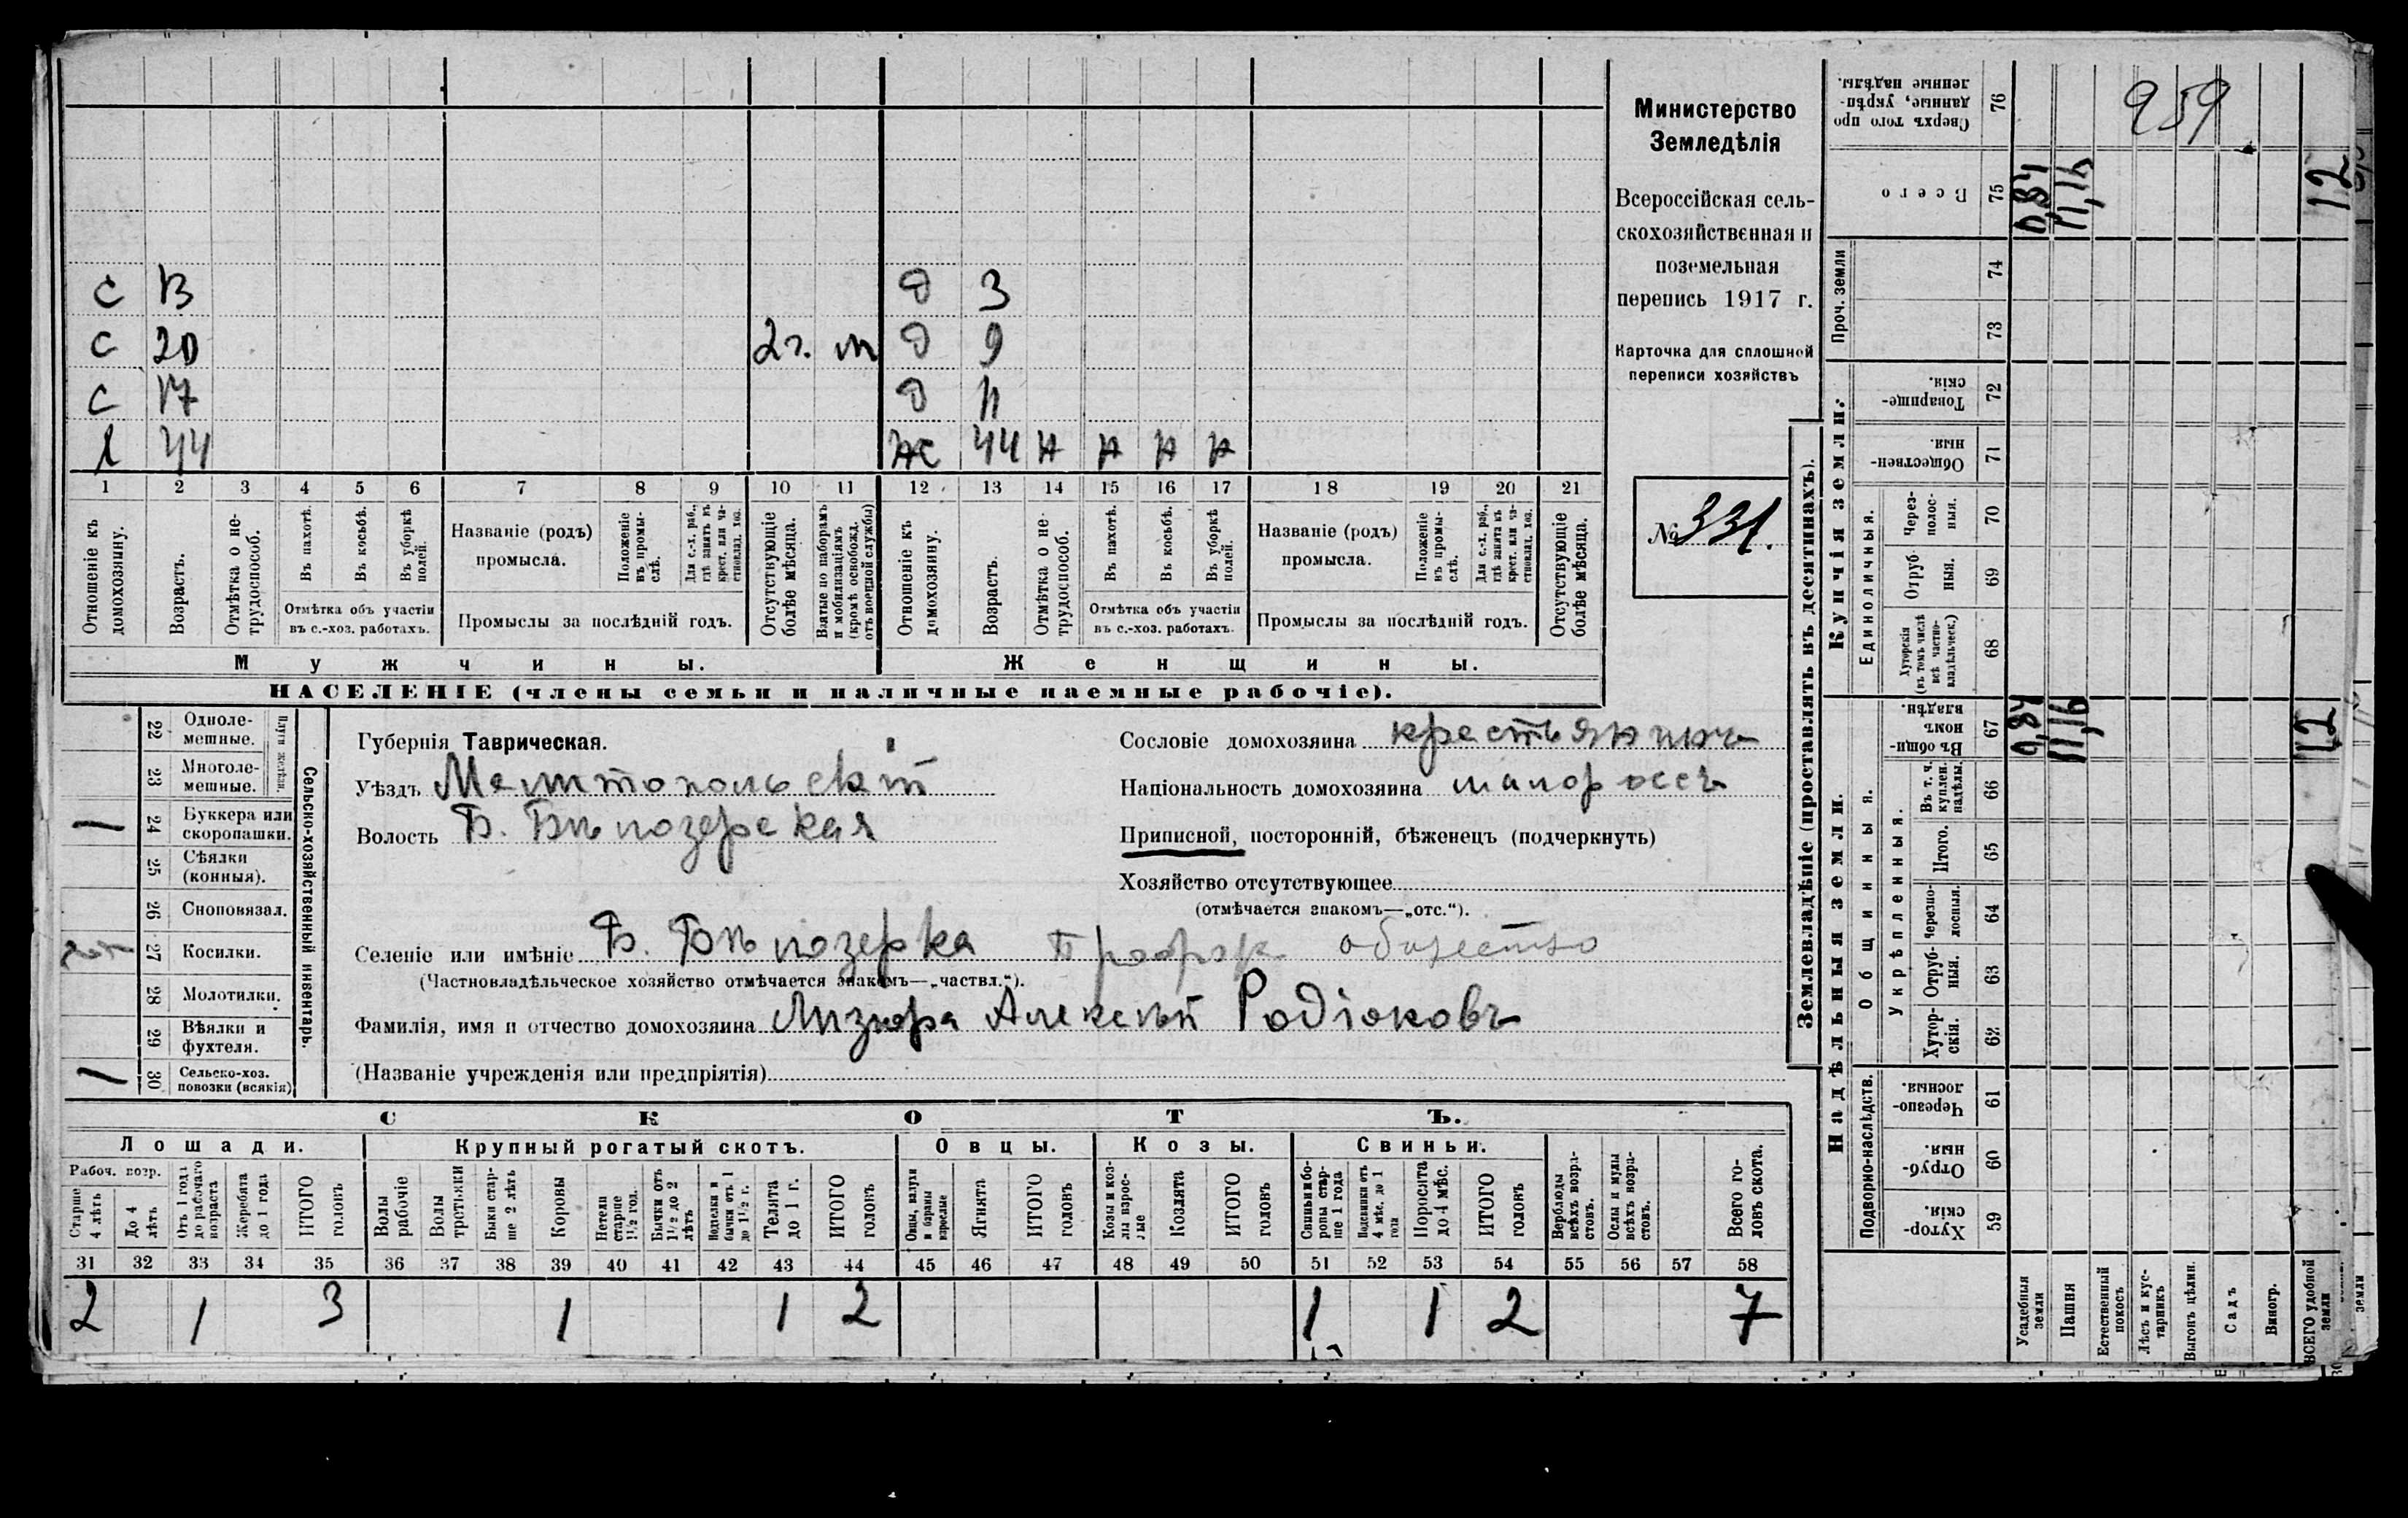 с 13 д 3
с 20 2 г. м д 9
с 17 д 11
1 44 ж 44 н н н н
1 2 3 4 5 6 7 8 9 10 11 12 13 14 15 16 17 18 19 20 21
Отношеніе къ домохозяину.
Возрастъ.
Отмѣтка о не-трудоспособ.
Въ пахотѣ.
Въ косьбѣ.
Въ уборкѣ полей.
Отмѣтка объ участіи въ с.-хоз. работахъ.
Названіе (родъ) промысла.
Положеніе въ промыслѣ.
Для с.-х. раб., гдѣ занятъ въ крест. или частновлад. хоз.
Промыслы за послѣдній годъ.
Отсутствующіе болѣе мѣсяца.
Взятые по наборамъ и мобилизаціямъ (кромѣ освобожд. отъ военной службы)
Отношеніе къ домохозяину.
Возрастъ.
Отмѣтка о не-трудоспособ.
Въ пахотѣ.
Въ косьбѣ.
Въ уборкѣ полей.
Отмѣтка объ участіи въ с.-хоз. работахъ.
Названіе (родъ) промысла.
Положеніе въ промыслѣ.
Для с.-х. раб., гдѣ занята въ крест. или частновлад. хоз.
Промыслы за послѣдній годъ.
Отсутствующіе болѣе мѣсяца.
Мужчины. Женщины.
НАСЕЛЕНІЕ (члены семьи и наличные наемные рабочіе).
Министерство
Земледѣлія
Всероссійская сель-
скохозяйственная и
поземельная
перепись 1917 г.
Карточка для сплошной
переписи хозяйствъ
№ 331.
22 Одноле-мешные.
23 Многоле-мешные.
Плуги желѣзн.
24 Буккера или скоропашки. 1
25 Сѣялки (конныя).
26 Сноповязал.
27 Косилки.
28 Молотилки.
29 Вѣялки и фухтеля.
30 Сельско-хоз. повозки (всякія) 1
Сельско-хозяйственный инвентарь.
Губернія Таврическая.
Уѣздъ Мелитопольскій
Волость Б. Бѣлозерская
Селеніе или имѣніе Б. Бѣлозерка общество
(Частновладѣльческое хозяйство отмѣчается знакомъ—„частвл.“).
Фамилія, имя и отчество домохозяина Лизюра Алексѣй Родіоновъ
(Названіе учрежденія или предпріятія)
Сословіе домохозяина крестьянинъ
Національность домохозяина малороссъ
Приписной, посторонній, бѣженецъ (подчеркнуть)
Хозяйство отсутствующее
(отмѣчается знакомъ—„отс.“).
СКОТЪ.
Лошади. Крупный рогатый скотъ. Овцы. Козы. Свиньи.
Рабоч. возр.
Старше 4 лѣтъ
До 4 лѣтъ
Отъ 1 года до рабочаго возраста
Жеребята до 1 года
ИТОГО головъ
Волы рабочіе
Волы третьяки
Быки стар-ше 2 лѣтъ
Коровы
Нетели старше 1½ год.
Бычки отъ 1½ до 2 лѣтъ
Телята до 1 г.
ИТОГО головъ
Овцы, валухи и бараны взрослые
Ягнята
ИТОГО головъ
Козы и коз-лы взрос-лые
Козлята
ИТОГО головъ
Свиньи и бо-ровы стар-ше 1 года
Подсвинки отъ 4 мѣс. до 1 года
Поросята до 4 мѣс.
ИТОГО головъ
Верблюды всѣхъ возра-стовъ.
Ослы и мулы всѣхъ возра-стовъ.
Всего го-ловъ скота.
31 32 33 34 35 36 37 38 39 40 41 42 43 44 45 46 47 48 49 50 51 52 53 54 55 56 57 58
2 1 3 1 1 2 1 1 2 7
Землевладѣніе (проставлять въ десятинахъ).
Надѣльныя земли. Купчія земли. Проч. земли
Подворно-наслѣдств.
Общинныя.
Укрѣпленныя.
Единоличныя.
Хутор-скія. 59
Отруб-ныя. 60
Черезпо-лосныя. 61
Хутор-скія. 62
Отруб-ныя. 63
Черезпо-лосныя. 64
Итого. 65
Въ т. ч. куплен. надѣлы. 66
Въ общи-номъ владѣн. 67 0,84 11,16 12
Хуторскія (въ томъ числѣ всѣ частно-владѣльческ.) 68
Отруб-ныя. 69
Через-полос-ныя. 70
Обществен-ныя. 71
Товарище-скія. 72
73
74
Всего 75 0,84 11,16 12
Сверхъ того про-данные, укрѣп-ленные надѣлы. 76
959
Усадебныя земли
Пашня
Естественный покосъ
Лѣсъ и кус-тарникъ
Выгонъ цѣлин.
Садъ
Виногр.
ВСЕГО удобной земли
земли